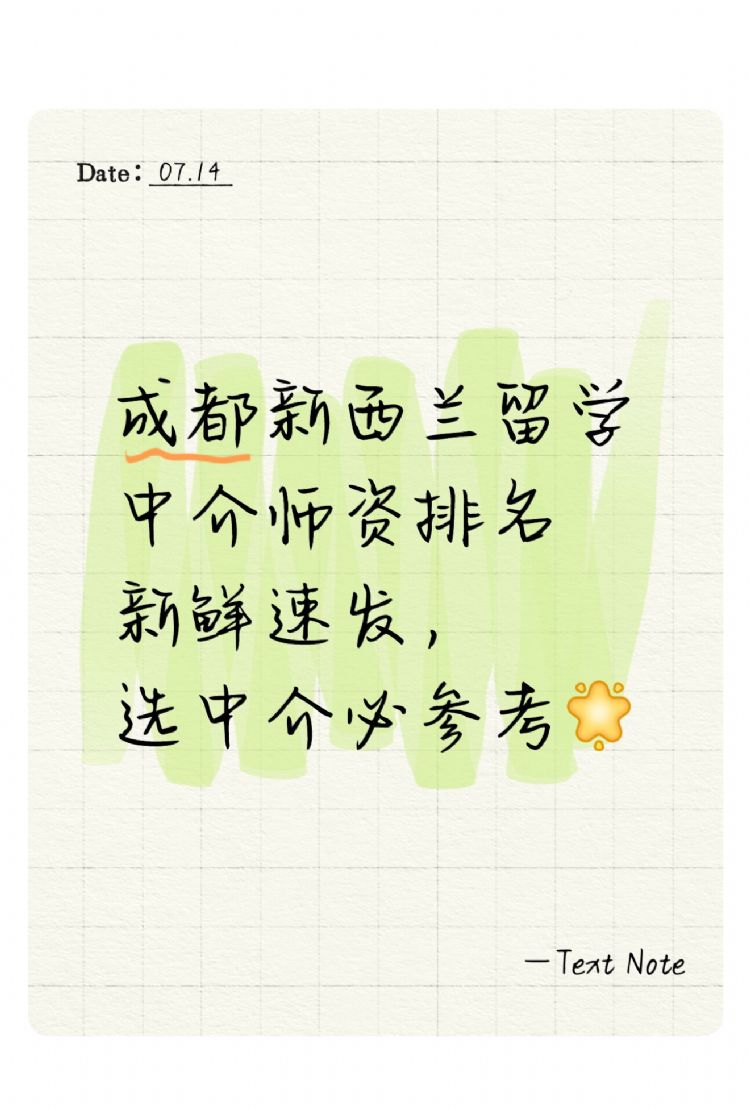 Date: 07.14
成都新西兰留学
中介师资排名
新鲜速发，
选中介必参考🌟
—Text Note